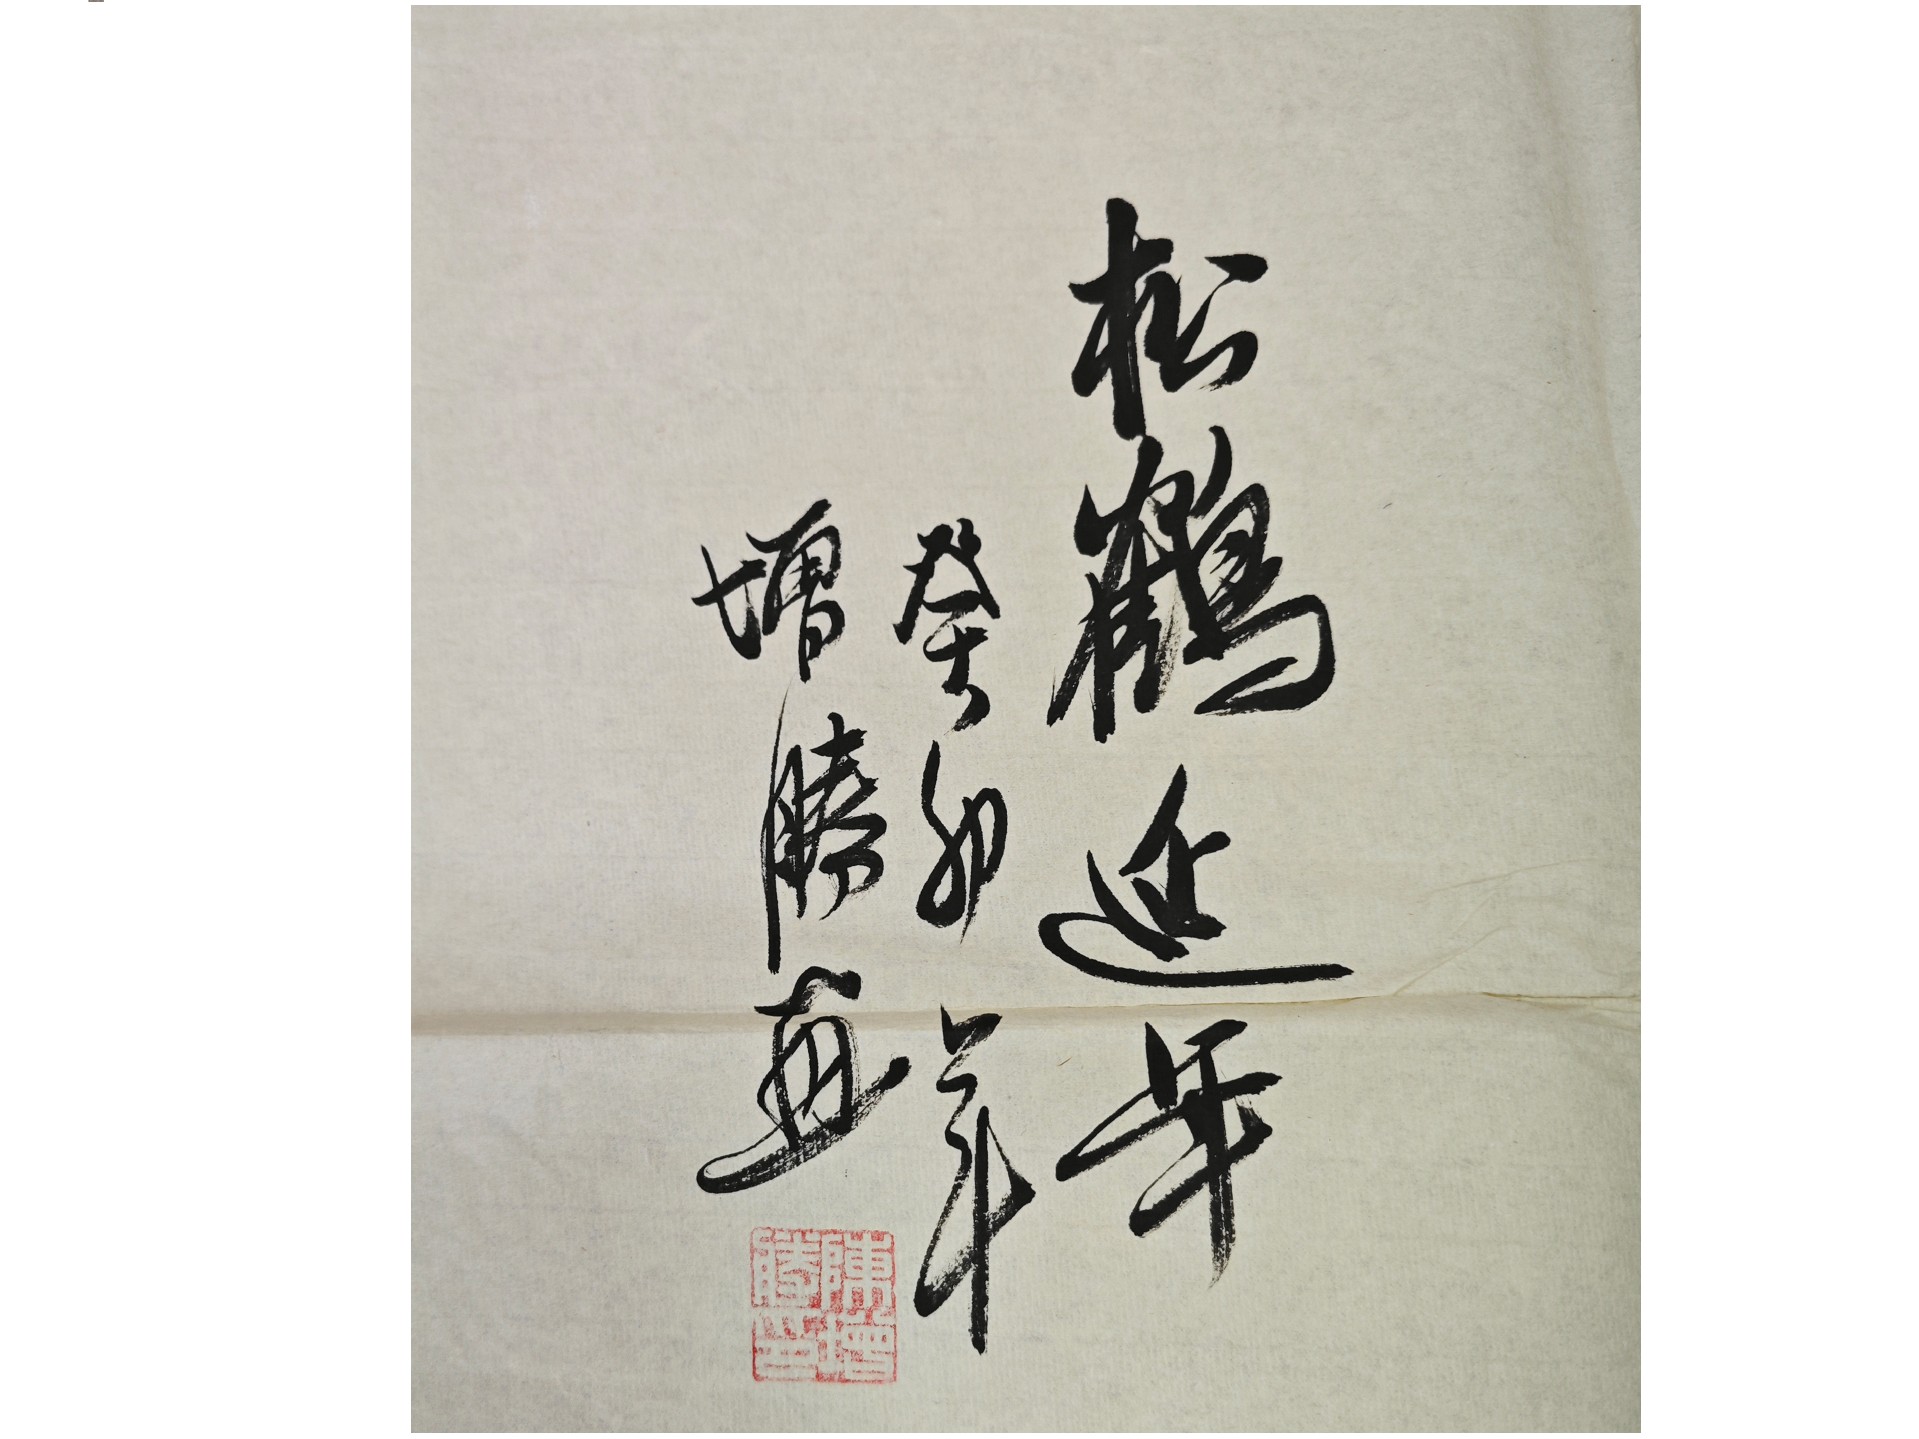 松鶴延年
癸卯年
增勝畫
陳增勝印